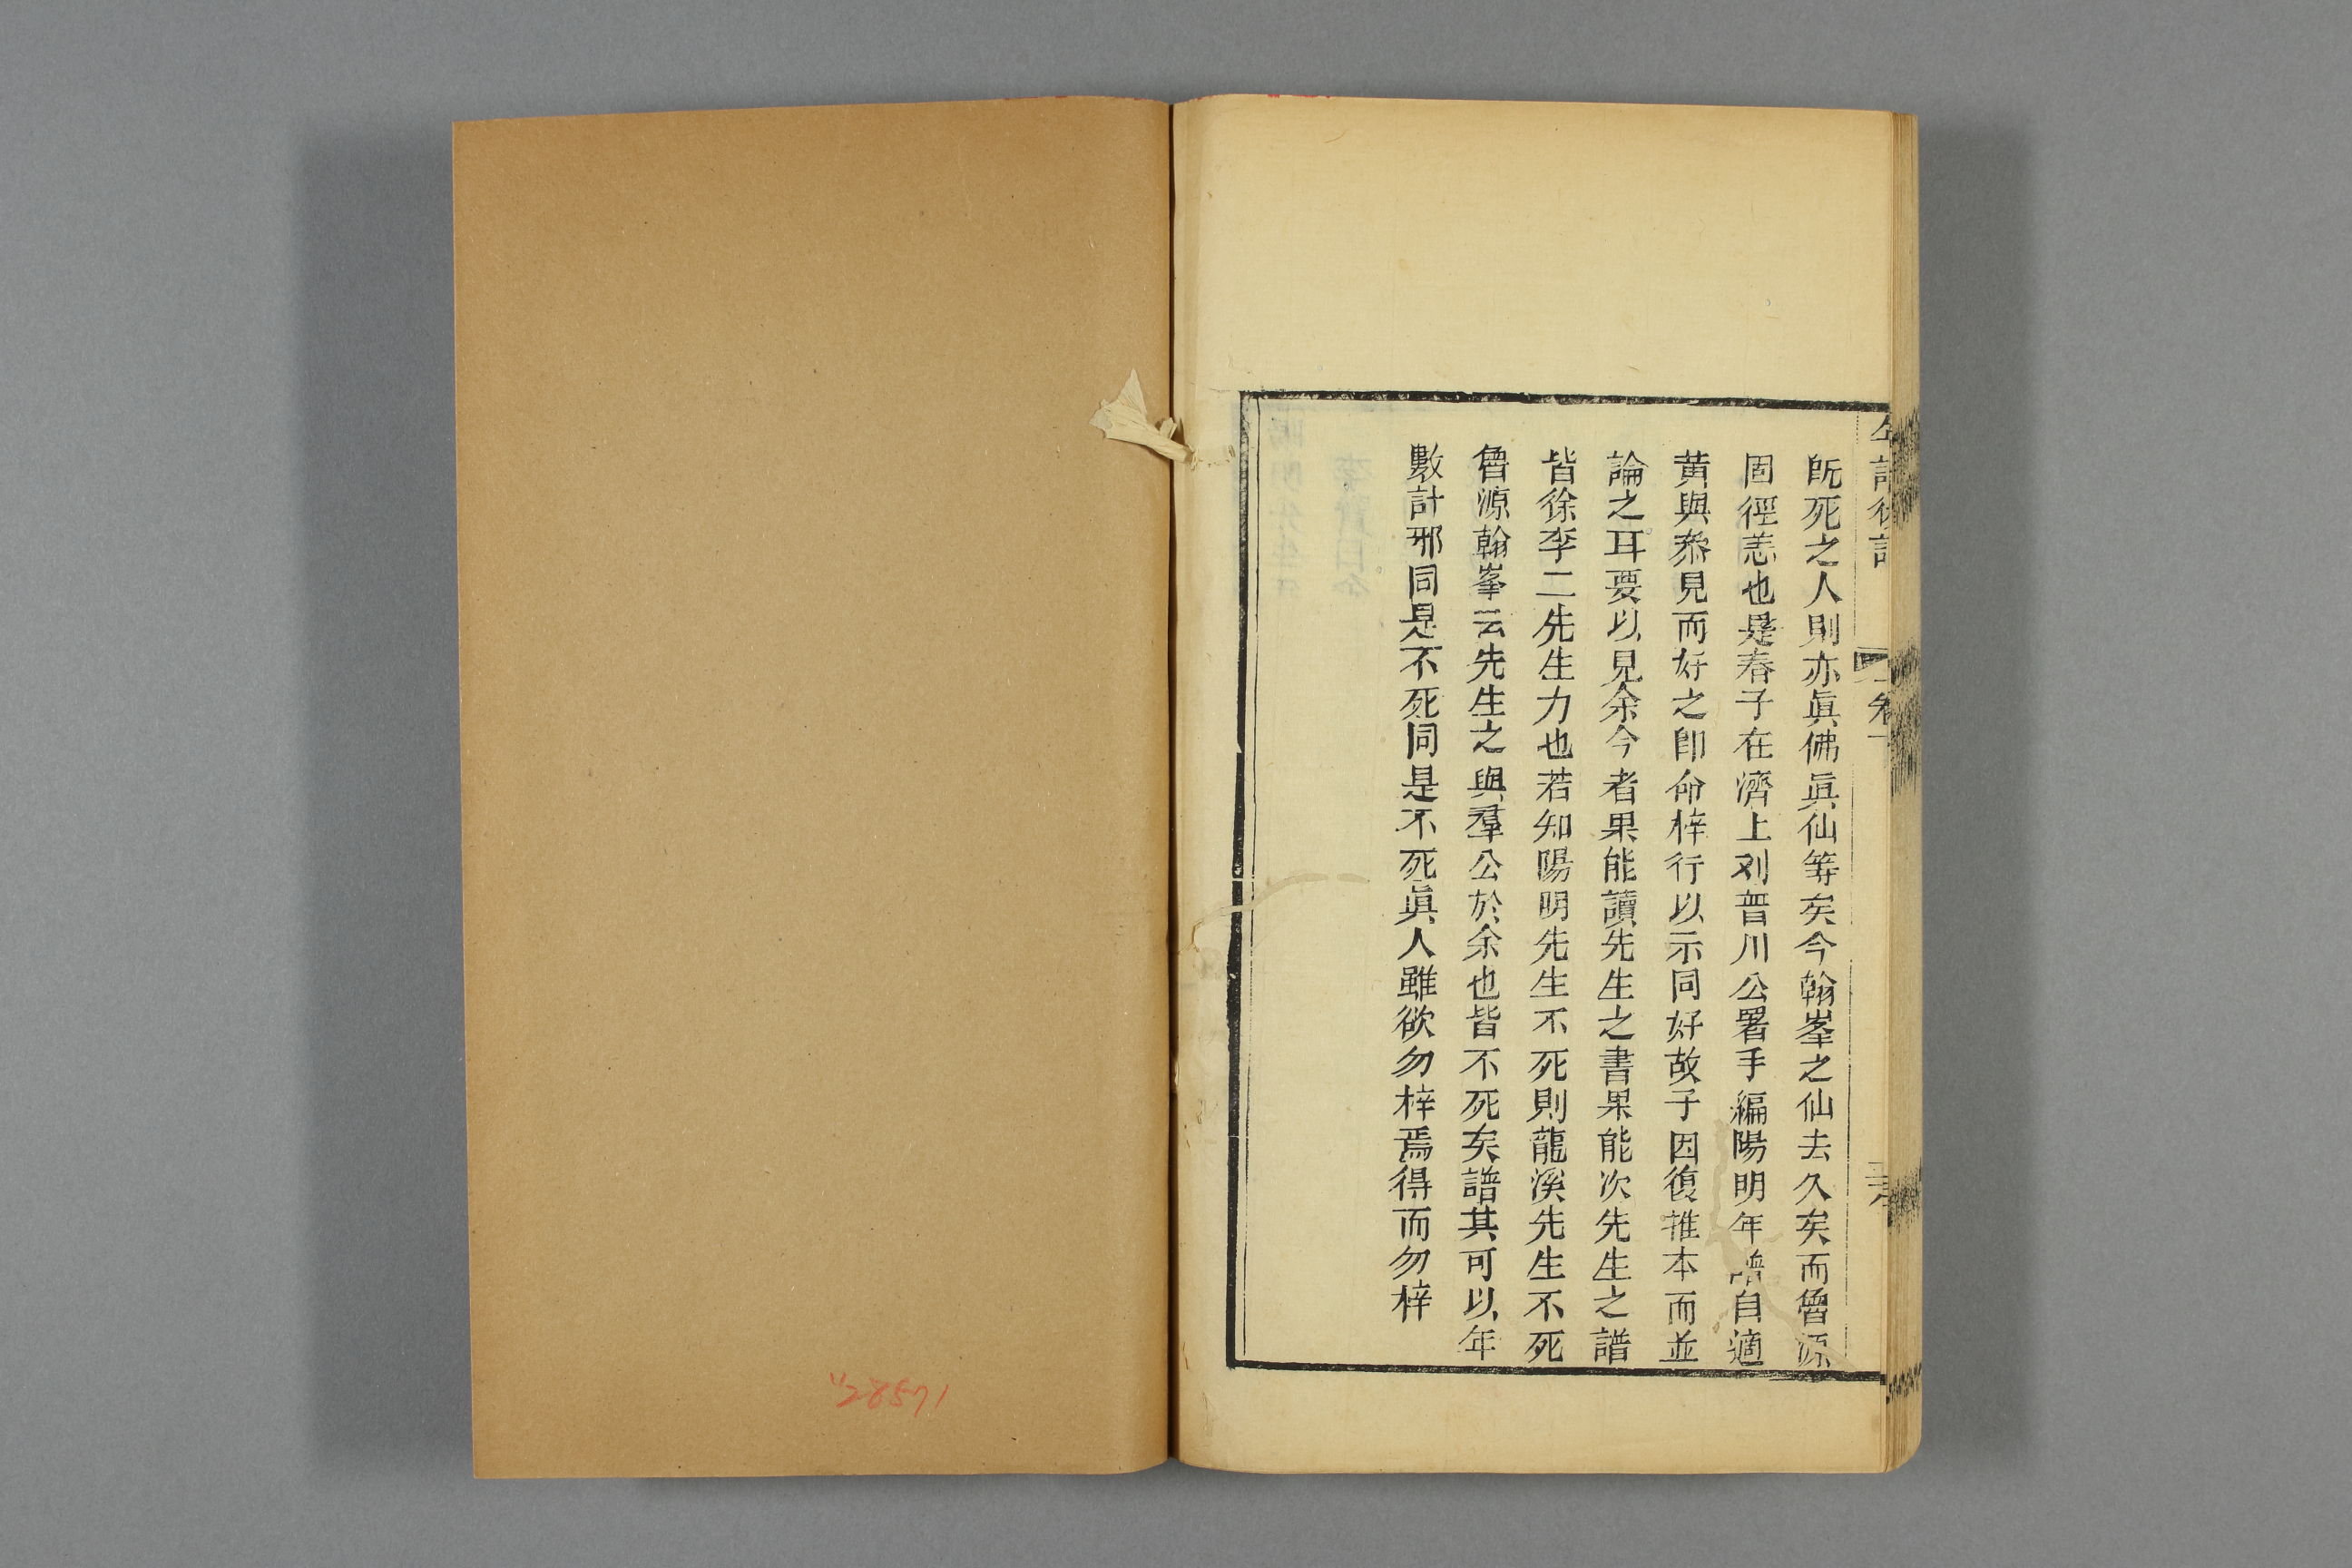 年譜後語
卷下
旣死之人則亦眞佛眞仙等矣今翰峯之仙去久矣而魯源
固徑恙也是春予在濟上刘晉川公署手編陽明年譜自適
黄與叅見而好之卽命梓行以示同好故予因復推本而並
論之耳要以見余今者果能讀先生之書果能次先生之譜
皆徐李二先生力也若知陽明先生不死則龍溪先生不死
魯源翰峯云先生之與羣公於余也皆不死矣譜其可以年
數計邪同是不死同是不死眞人雖欲勿梓焉得而勿梓
"28571